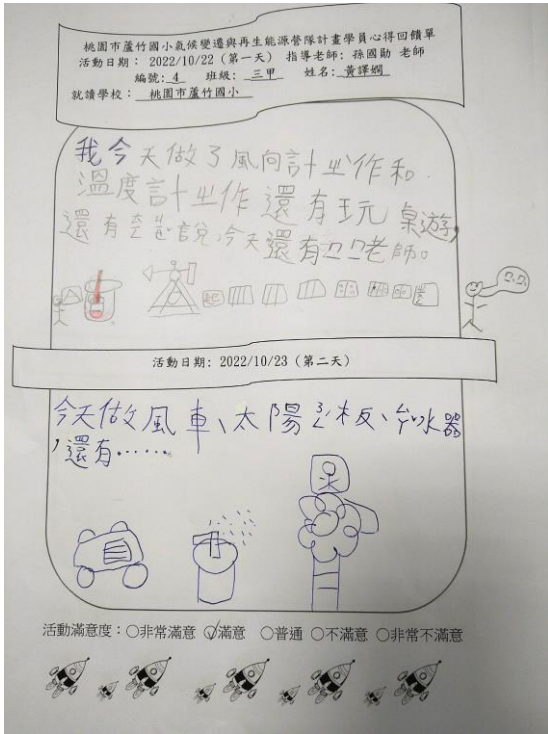 桃園市蘆竹國小氣候變遷與再生能源營隊計畫學員心得回饋單
活動日期： 2022/10/22（第一天） 指導老師：孫國勛 老師
編號：4 班級：三甲 姓名：黃譯嫻
就讀學校： 桃園市蘆竹國小
我今天做了風向計ㄓ作和
溫度計ㄓ作 還有玩 桌遊，
還有 說，今天還有ㄇㄇ老師。
活動日期：2022/10/23（第二天）
今天做風車、太陽ㄋㄥ板、 水器
，還有……
活動滿意度：○非常滿意 ○滿意 ○普通 ○不滿意 ○非常不滿意